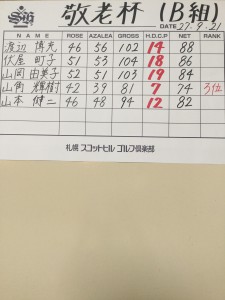 敬老杯 (B組)
DATE 27.9.21
NAME ROSE AZALEA GROSS H.D.C.P NET RANK
渡辺 博光 46 56 102 14 88
伏屋 町子 51 53 104 18 86
山岡 由美子 52 51 103 19 84
山角 輝樹 42 39 81 7 74 3位
山本 健二 46 48 94 12 82
札幌 スコットヒル ゴルフ倶楽部